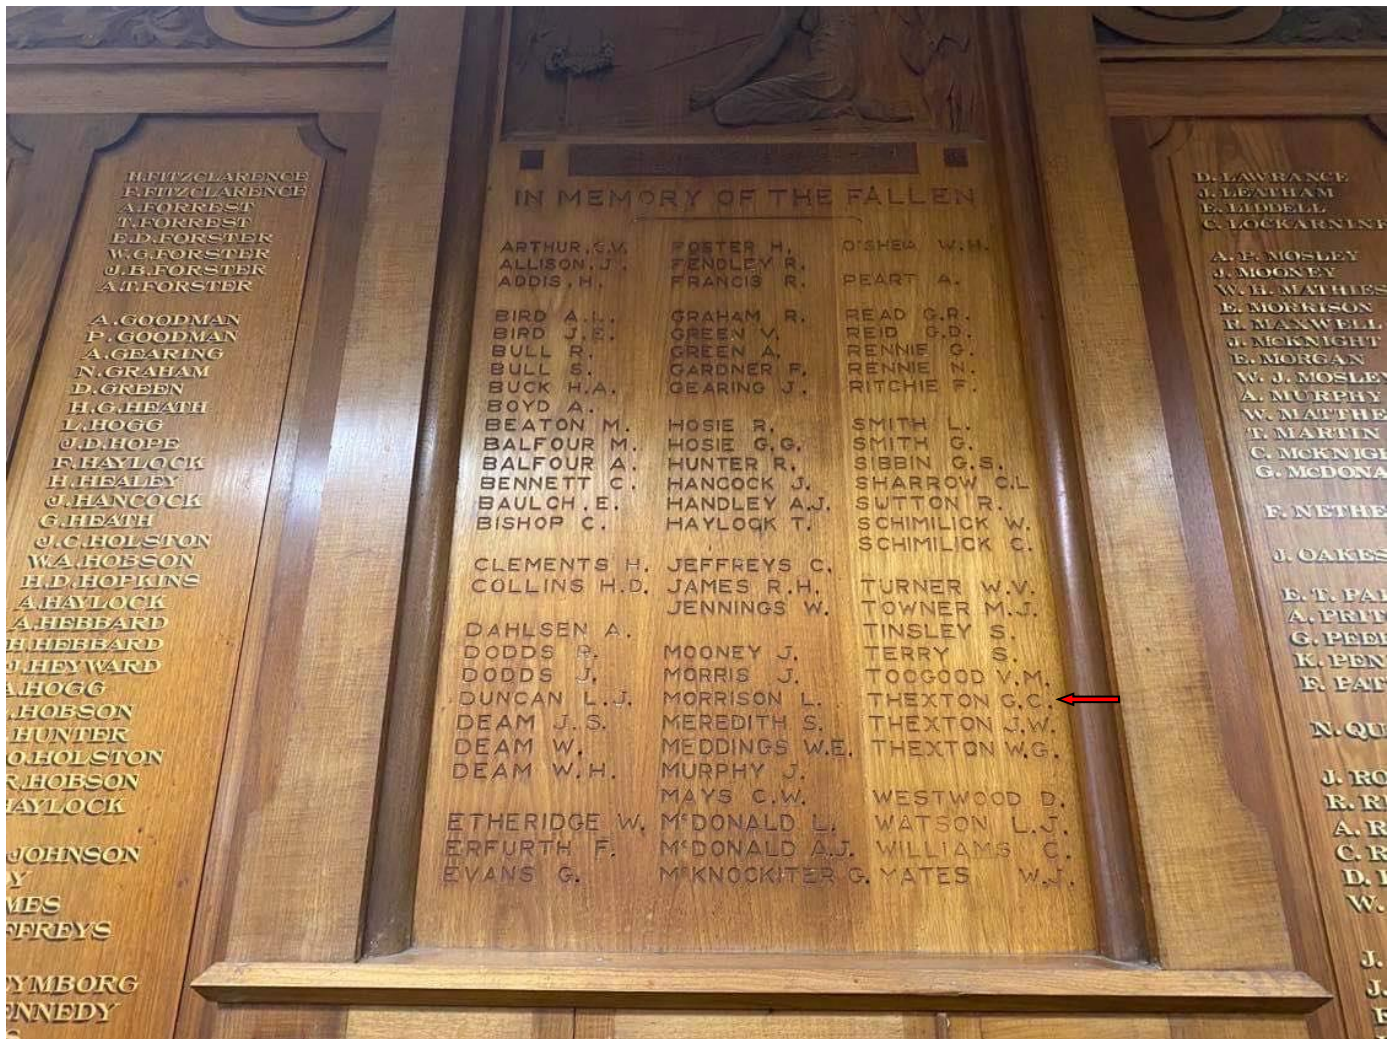 H.FITZCLARENCE
F.FITZCLARENCE
A.FORREST
T.FORREST
E.D.FORSTER
W.G.FORSTER
J.B.FORSTER
A.T.FORSTER
A.GOODMAN
P.GOODMAN
A.GEARING
N.GRAHAM
D.GREEN
H.G.HEATH
L.HOGG
J.D.HOPE
F.HAYLOCK
H.HEALEY
J.HANCOCK
G.HEATH
J.C.HOLSTON
W.A.HOBSON
H.D.HOPKINS
A.HAYLOCK
A.HEBBARD
H.HEBBARD
J.HEYWARD
A.HOGG
.HOBSON
HUNTER
O.HOLSTON
R.HOBSON
HAYLOCK
JOHNSON
Y
MES
FFREYS
YMBORG
ENNEDY
IN MEMORY OF THE FALLEN
ARTHUR.G.V.
ALLISON.J.
ADDIS.H.
BIRD A.L.
BIRD J.E.
BULL R.
BULL S.
BUCK H.A.
BOYD A.
BEATON M.
BALFOUR M.
BALFOUR A.
BENNETT C.
BAULCH.E.
BISHOP C.
CLEMENTS H.
COLLINS H.D.
DAHLSEN A.
DODDS R.
DODDS J.
DUNCAN L.J.
DEAM J.S.
DEAM W.
DEAM W.H.
ETHERIDGE W.
ERFURTH F.
EVANS G.
FOSTER H.
FENDLEY R.
FRANCIS R.
GRAHAM R.
GREEN V.
GREEN A.
GARDNER F.
GEARING J.
HOSIE R.
HOSIE G.G.
HUNTER R.
HANCOCK J.
HANDLEY A.J.
HAYLOCK T.
JEFFREYS C.
JAMES R.H.
JENNINGS W.
MOONEY J.
MORRIS J.
MORRISON L.
MEREDITH S.
MEDDINGS W.E.
MURPHY J.
MAYS C.W.
McDONALD L.
McDONALD A.J.
McKNOCKITER G.
O'SHEA W.H.
PEART A.
READ G.R.
REID G.D.
RENNIE G.
RENNIE N.
RITCHIE F.
SMITH L.
SMITH G.
SIBBIN G.S.
SHARROW C.L
SUTTON R.
SCHIMILICK W.
SCHIMILICK C.
TURNER W.V.
TOWNER M.J.
TINSLEY S.
TERRY S.
TOOGOOD V.M.
THEXTON G.C.
THEXTON J.W.
THEXTON W.G.
WESTWOOD D.
WATSON L.J.
WILLIAMS C.
MATES W.J.
D. LAWRANCE
J. LEATHAM
E. LIDDELL
C. LOCKARNINE
A. P. MOSLEY
J. MOONEY
W. H. MATHIES
E. MORRISON
R. MAXWELL
J. McKNIGHT
E. MORGAN
W. J. MOSLEY
A. MURPHY
W. MATTHE
T. MARTIN
C. McKNIGH
G. McDONA
F. NETHE
J. OAKES
E. T. PA
A. PRIT
G. PEE
K. PEN
F. PAT
N. QU
J. RO
R. R
A. R
C. R
D.
W.
J.
J.